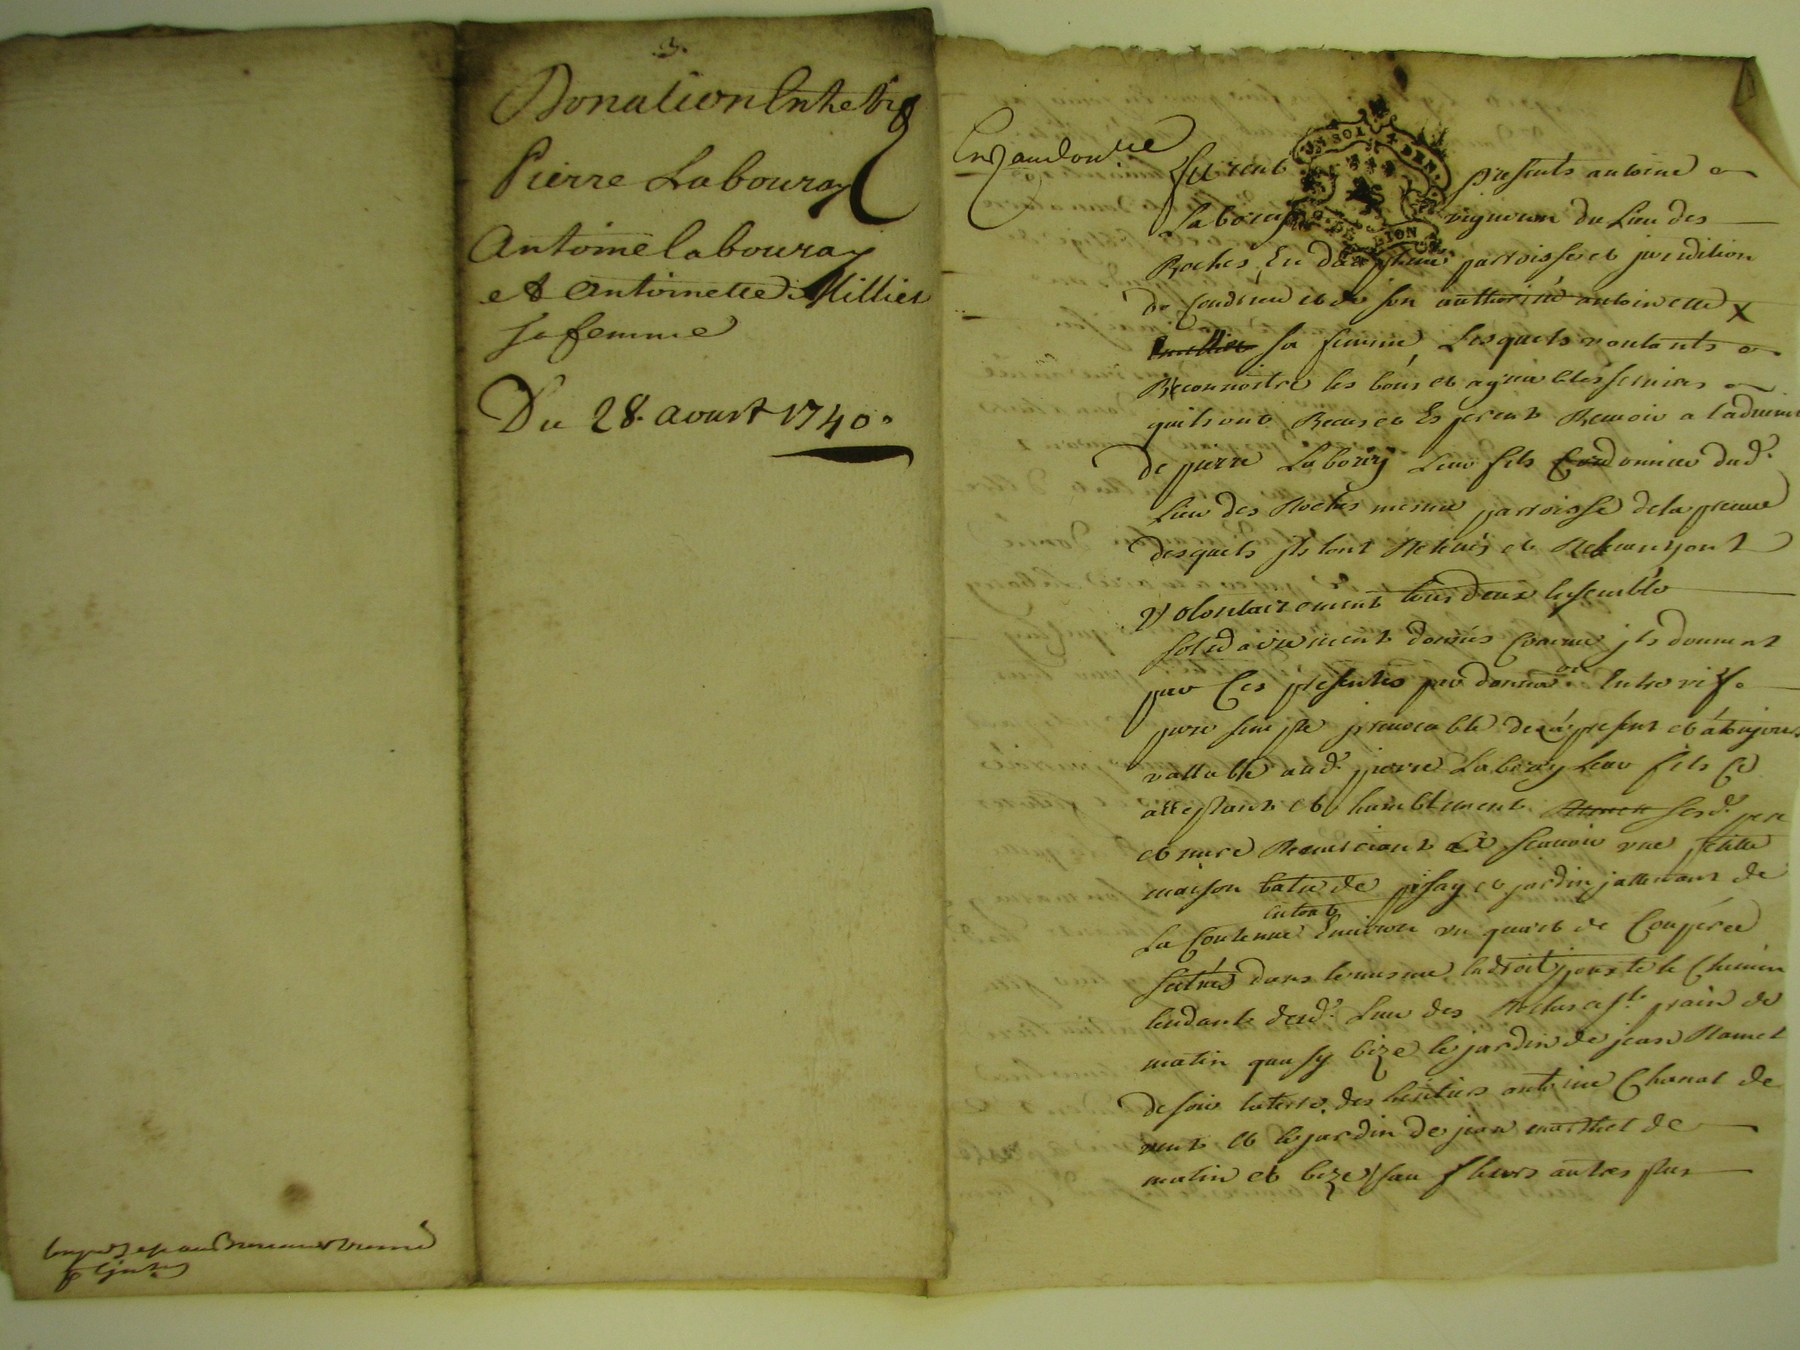 3.
Donation Entre
Pierre Labouray
Antoine labouray
et antoinette Millier
sa femme
Du 28. aoust 1740.
furent presents antoine
vigneron du Lieu des
Roches En dauphine parroisse et juridition
de Condrieu et de son authorité antoinette x
sa femme Lesquels voulants
Reconnoitre les bons et agreables services
quils ont Receus et Esperent Recevoir a l'advenir
de pierre Laboray Leur fils Cordonnier dud.
Lieu des Roches mesme parroisse de la preuve
desquels jls l'ont Relevés et Relevent jont
volontairement tous deux Ensemble
solidairement donnés Comme jls donnent
par Ces presentes par donnaon Entre vifs
pure simple jrrevocable des à present et à toujours
vallable aud. pierre Laboray Leur fils Cy
acceptant et humblement sesd. pere
et mere Remerciant a sçavoir une petite
maison batie de pisay et jardin jattenant de
La Contenue Environ un quart de Couperée
scitués dans le mesme Endroit jouxte le Chemin
tendant dud. Lieu des Roches a st. prain de
matin quasy bize le jardin de jean Ramet
de soir la terre des heritiers antoine Chanal de
vent et le jardin de jean marthel de
matin et bize sauf leurs autres plus